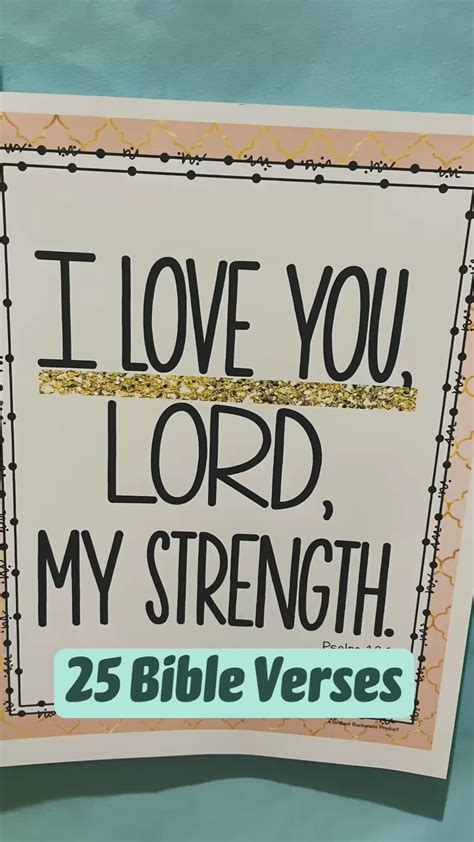 I LOVE YOU,
LORD,
MY STRENGTH.
25 Bible Verses